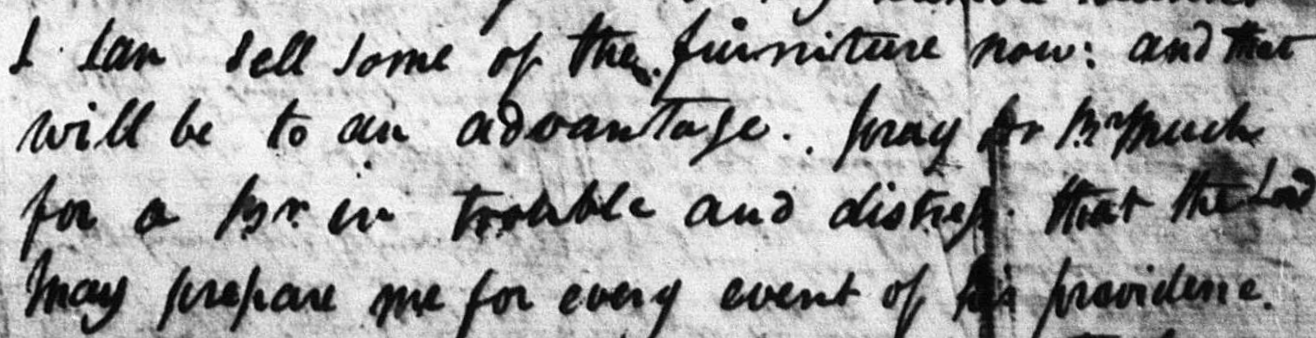 I can sell some of the furniture now: and that
will be to an advantage. pray Dr Br much
for a Br. in trouble and distress. that the Lord
may prepare me for every event of his providence.